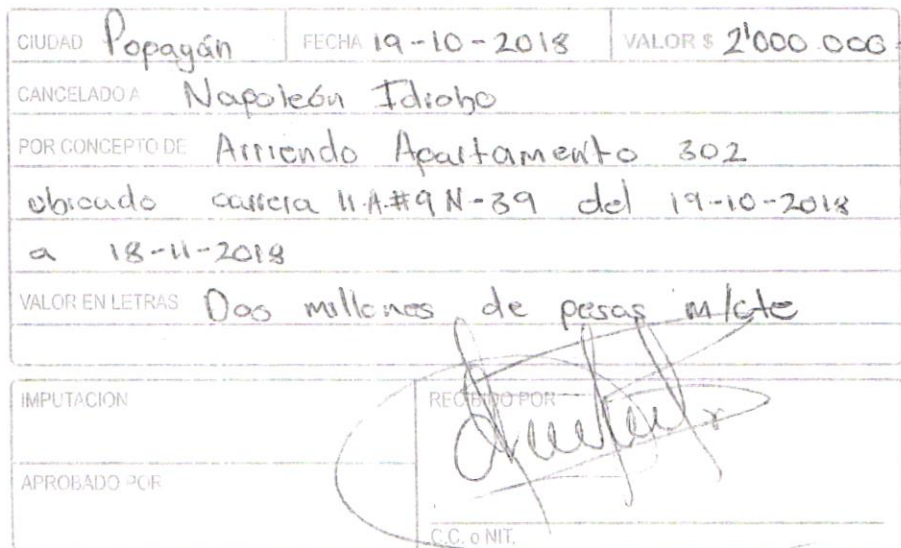 CIUDAD Popayán FECHA 19-10-2018 VALOR $ 2'000.000.
CANCELADO A Napoleón Idrobo
POR CONCEPTO DE Arriendo Apartamento 302
ubicado carrera 11A#9N-39 del 19-10-2018
a 18-11-2018
VALOR EN LETRAS Dos millones de pesos m/cte
IMPUTACION RECIBIDO POR
APROBADO POR
C.C. o NIT.